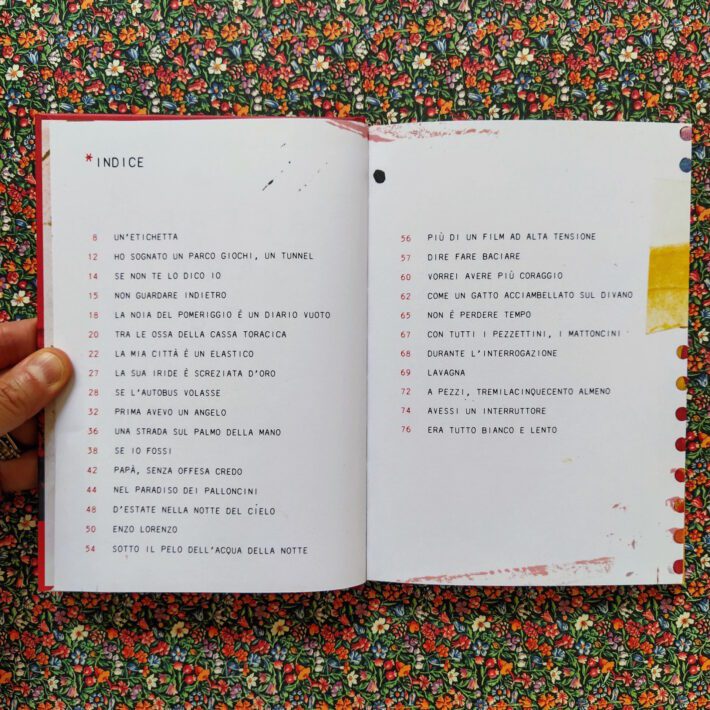 *INDICE
8 UN'ETICHETTA
12 HO SOGNATO UN PARCO GIOCHI, UN TUNNEL
14 SE NON TE LO DICO IO
15 NON GUARDARE INDIETRO
18 LA NOIA DEL POMERIGGIO É UN DIARIO VUOTO
20 TRA LE OSSA DELLA CASSA TORACICA
22 LA MIA CITTÀ É UN ELASTICO
27 LA SUA IRIDE É SCREZIATA D'ORO
28 SE L'AUTOBUS VOLASSE
32 PRIMA AVEVO UN ANGELO
36 UNA STRADA SUL PALMO DELLA MANO
38 SE IO FOSSI
42 PAPÀ, SENZA OFFESA CREDO
44 NEL PARADISO DEI PALLONCINI
48 D'ESTATE NELLA NOTTE DEL CIELO
50 ENZO LORENZO
54 SOTTO IL PELO DELL'ACQUA DELLA NOTTE
56 PIÙ DI UN FILM AD ALTA TENSIONE
57 DIRE FARE BACIARE
60 VORREI AVERE PIÙ CORAGGIO
62 COME UN GATTO ACCIAMBELLATO SUL DIVANO
65 NON É PERDERE TEMPO
67 CON TUTTI I PEZZETTINI, I MATTONCINI
68 DURANTE L'INTERROGAZIONE
69 LAVAGNA
72 A PEZZI, TREMILACINQUECENTO ALMENO
74 AVESSI UN INTERRUTTORE
76 ERA TUTTO BIANCO E LENTO